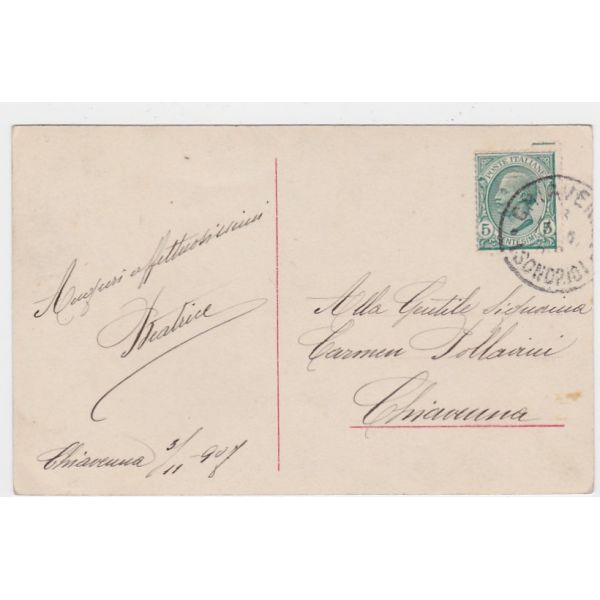 Auguri affettuosissimi
Beatrice
Chiavenna 3/11 - 907
POSTE ITALIANE
5 5
CENTESIMI
CHIAVEN
(SONDRIO)
Alla Gentile Signorina
Carmen Pollavini
Chiavenna